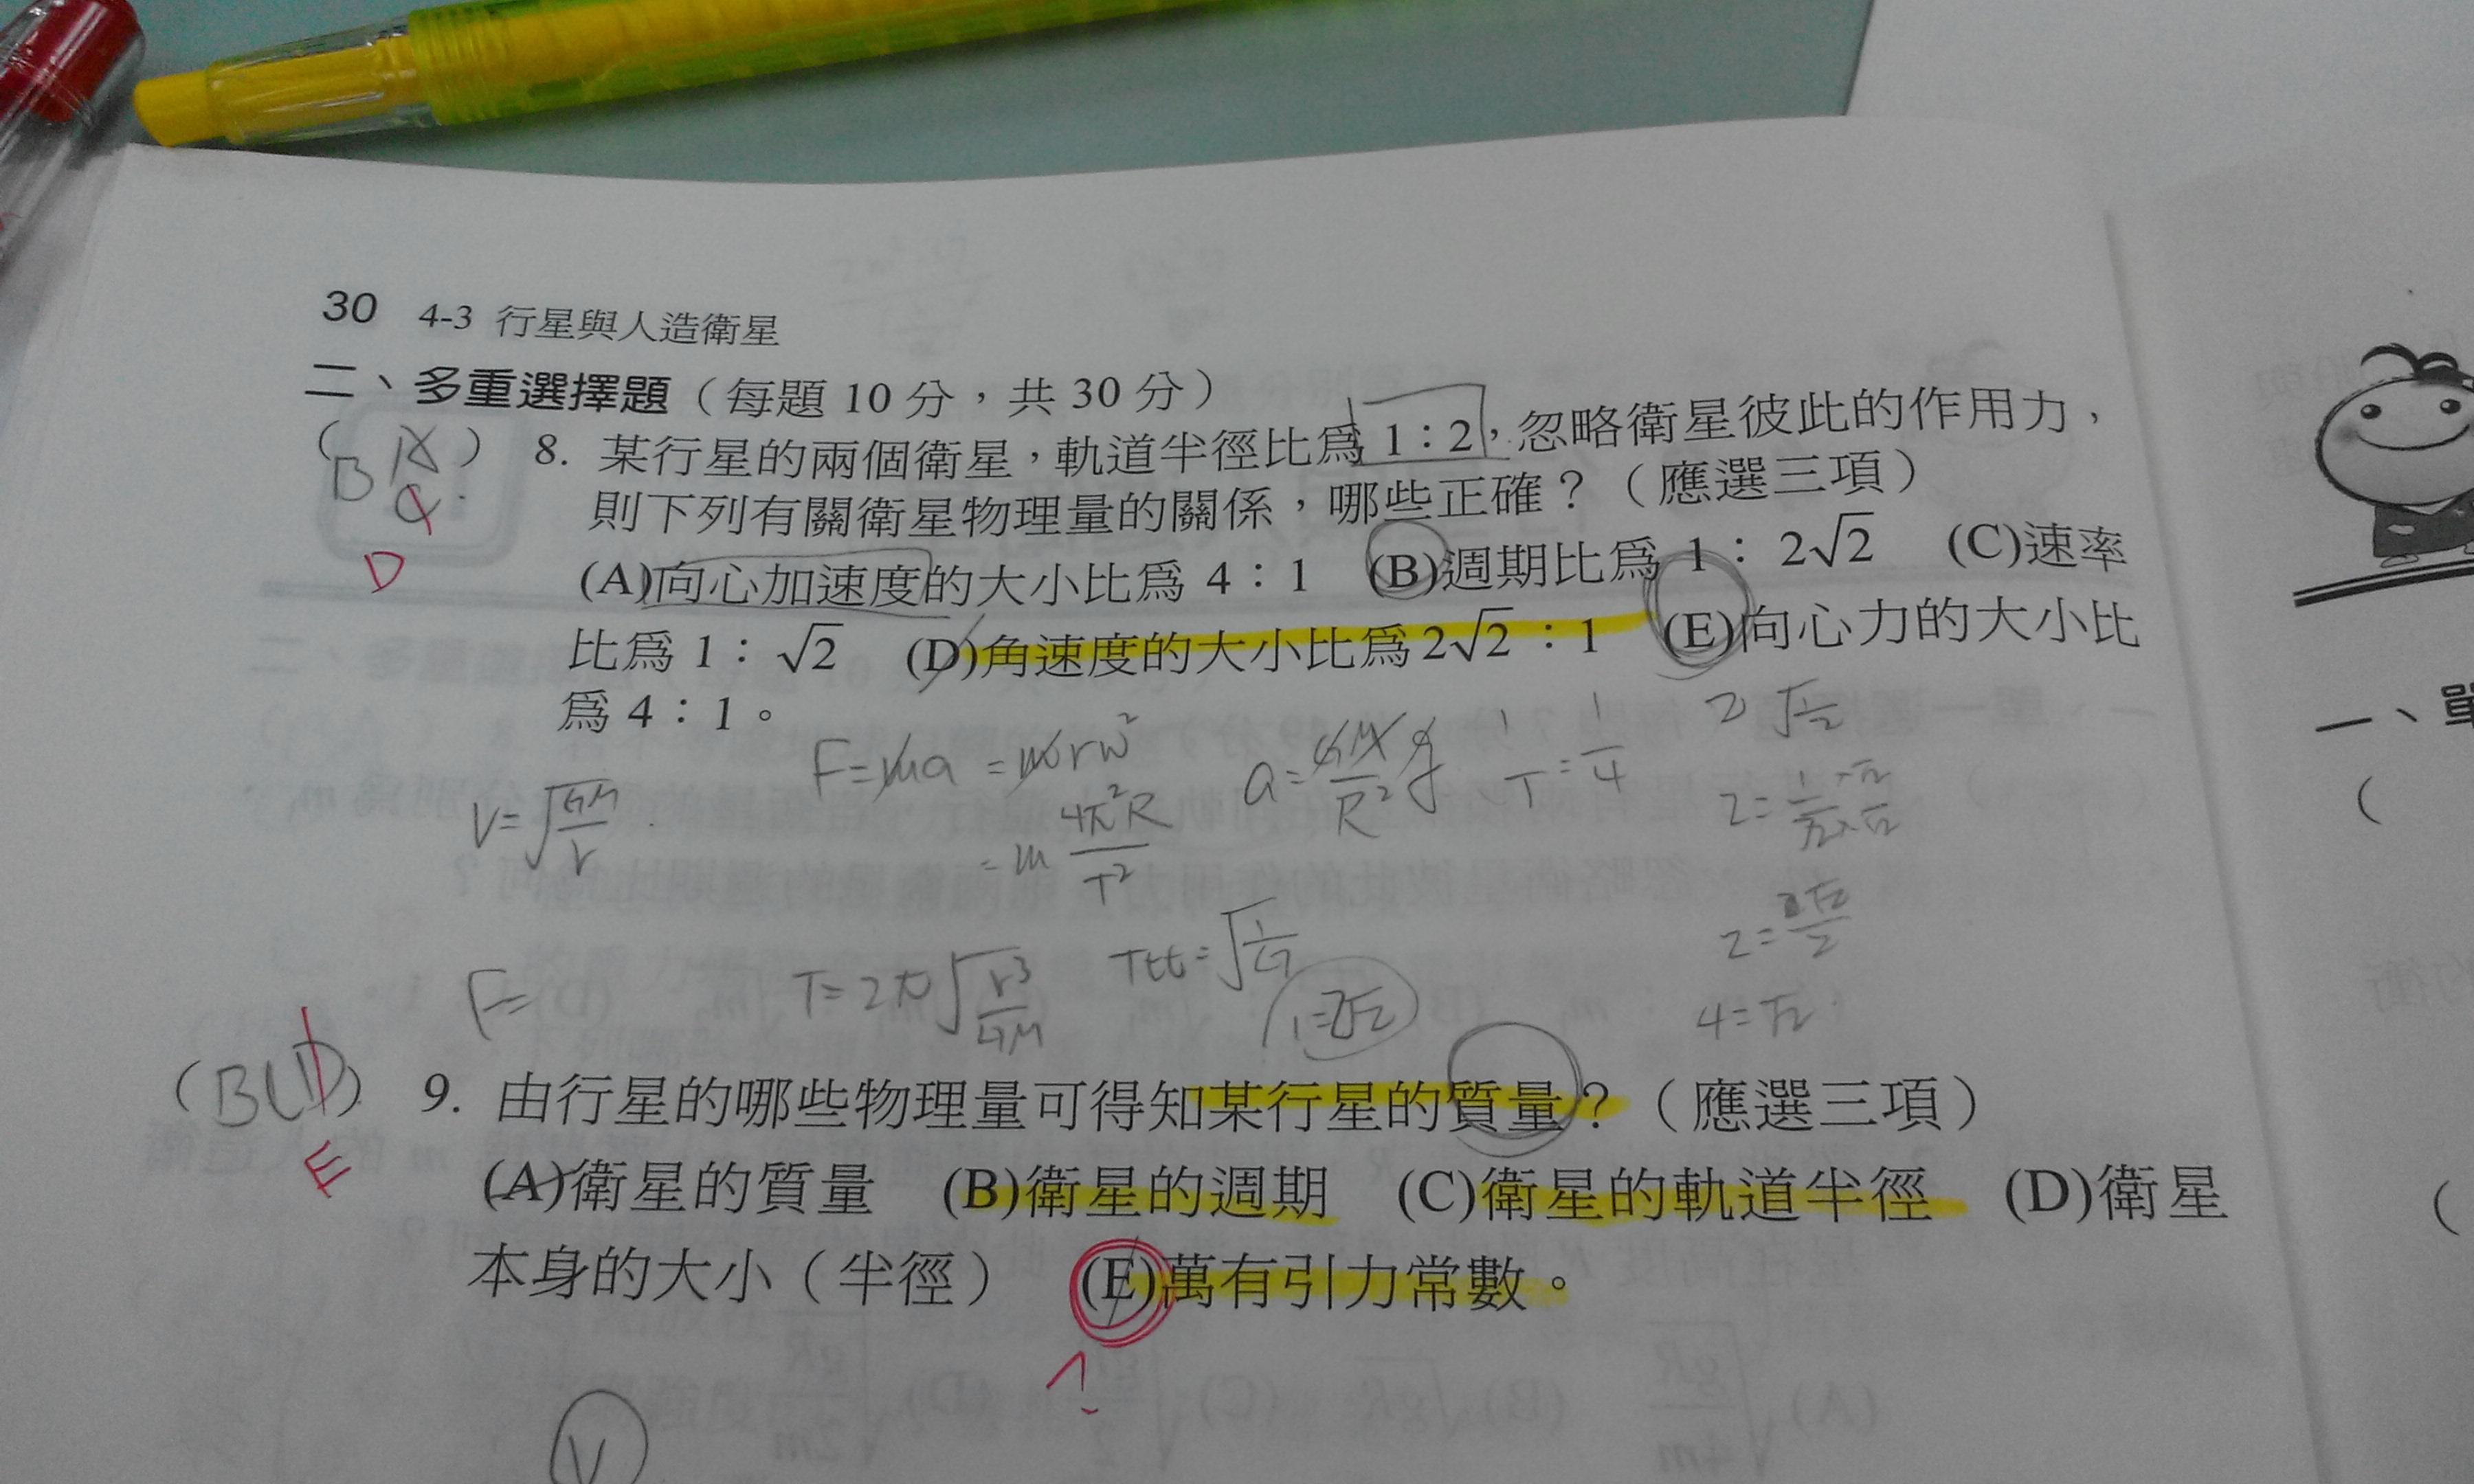 30 4-3 行星與人造衛星
二、多重選擇題（每題 10 分，共 30 分）
( B A ) 8. 某行星的兩個衛星，軌道半徑比爲 1：2，忽略衛星彼此的作用力，
D
則下列有關衛星物理量的關係，哪些正確？（應選三項）
(A)向心加速度的大小比爲 4：1 (B)週期比爲 1：2√2 (C)速率
比爲 1：√2 (D)角速度的大小比爲 2√2：1 (E)向心力的大小比
爲 4：1。
F=ma =mrω²
= m 4π²R/T²
V=√(GM/r)
a= GM/R²
1/T = 1/4
F=
T=2π√(r³/GM)
1=2√2
2 √(1/2)
4=√2
( BCD ) 9. 由行星的哪些物理量可得知某行星的質量？（應選三項）
E
(A)衛星的質量 (B)衛星的週期 (C)衛星的軌道半徑 (D)衛星
本身的大小（半徑） (E)萬有引力常數。
?
V
一、單
(
(